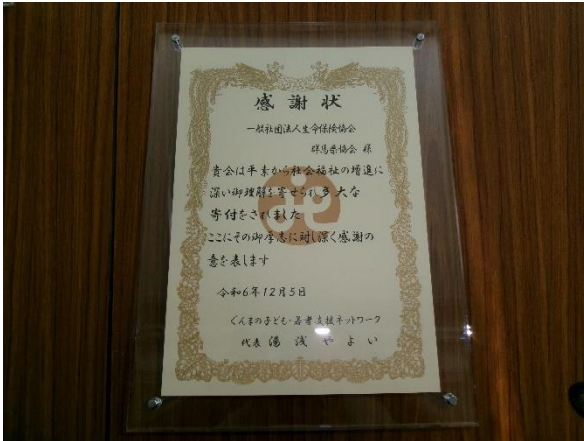 感謝状
一般社団法人生命保険協会
群馬県協会 様
貴会は平素から社会福祉の増進に
深い御理解を寄せられ多大な
寄付をされました
ここにその御厚志に対し深く感謝の
意を表します
令和6年12月5日
ぐんまの子ども・若者支援ネットワーク
代表 湯浅やよい